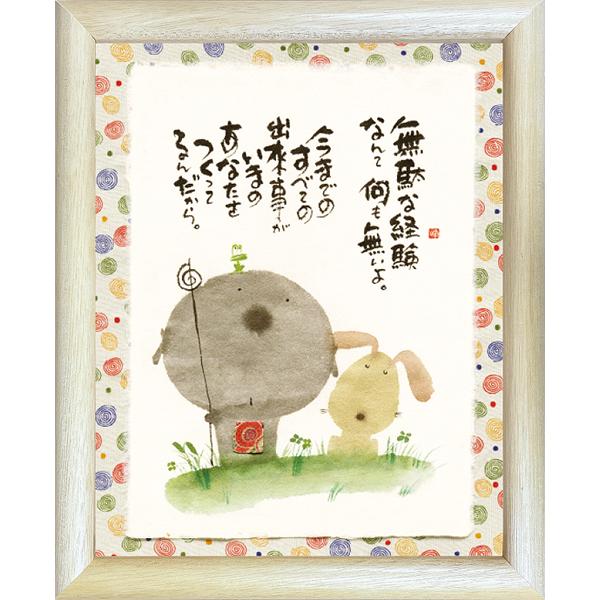 無駄な経験
なんて 何も無いよ。
今までの
すべての
出来事が
いまの
あなたを
つくって
るんだから。